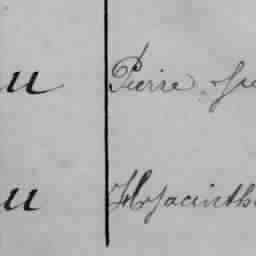 u Pierre
u Hyacinthe